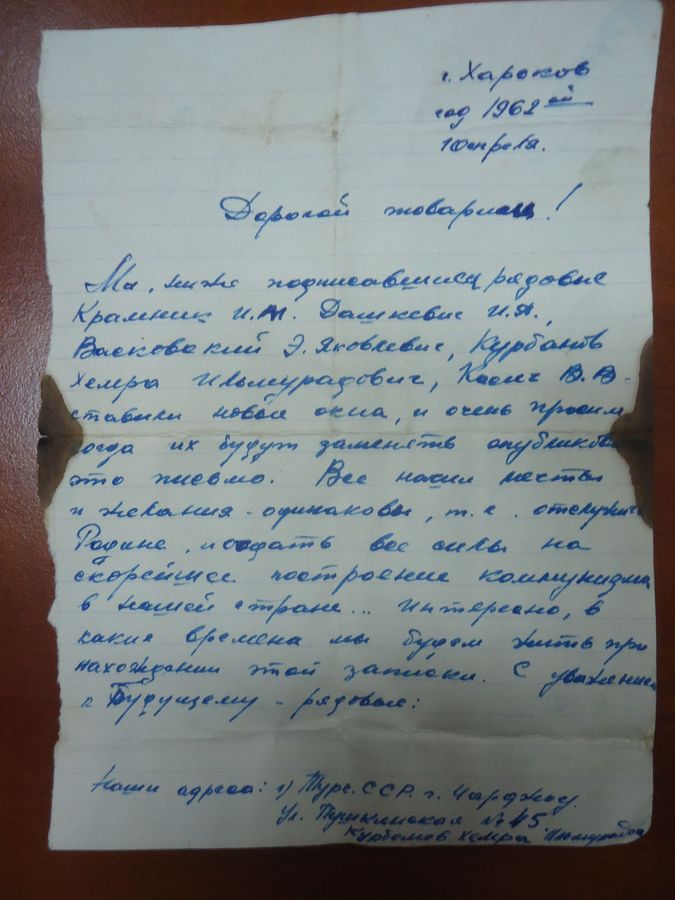 г. Харьков
год 1962 ой
10 апреля.
Дорогой товарищ!
Мы, ниже подписавшиеся рядовые
Крамник И.М. Дашкевис И.А,
Васковский Э. Яковлевич, Курбанов
Хемра Ильмурадович, В.В-
ставили новые окна, и очень просим
огда их будут заменять опубликова
это письмо. Все наши мечты
и желания - одинаковы, т.е. отслужит
Родине, и отдать все силы на
скорейшее построение коммунизма
в нашей стране... Интересно, в
какие времена мы будем жить при
нахождении этой записки. С уважением
к Будущему - рядовые:
Наши адреса: 1) Турк. ССР. г. Чарджоу.
Ул. Пушкинская № 45.
Курбанов Хемра